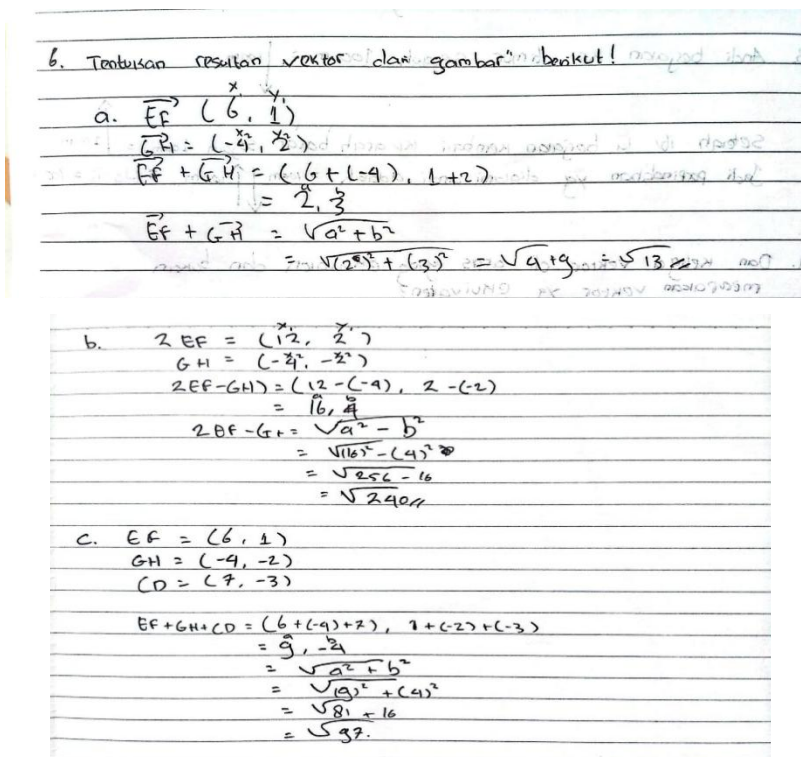 6. Tentukan resultan vektor dari gambar" berikut!
x₁ y₁
a. EF (6, 1)
x₂ y₂
GH = (-4, 2)
EF + GH = (6 + (-4), 1 + 2)
a b
= 2, 3
EF + GH = √a² + b²
= √(2)² + (3)² = √4+9 = √13
b. 2 EF = (12, 2)
GH = (-4, -2)
2EF-GH) = (12 - (-4), 2 - (-2)
a b
= 16, 4
= √a² - b²
= √(16)² - (4)²
= √256 - 16
= √240
c. EF = (6, 1)
GH = (-4, -2)
CD = (7, -3)
EF + GH + CD = (6 + (-4) + 7), 1 + (-2) + (-3)
a b
= 9, -4
= √a² + b²
= √(9)² + (4)²
= √81 + 16
= √97.